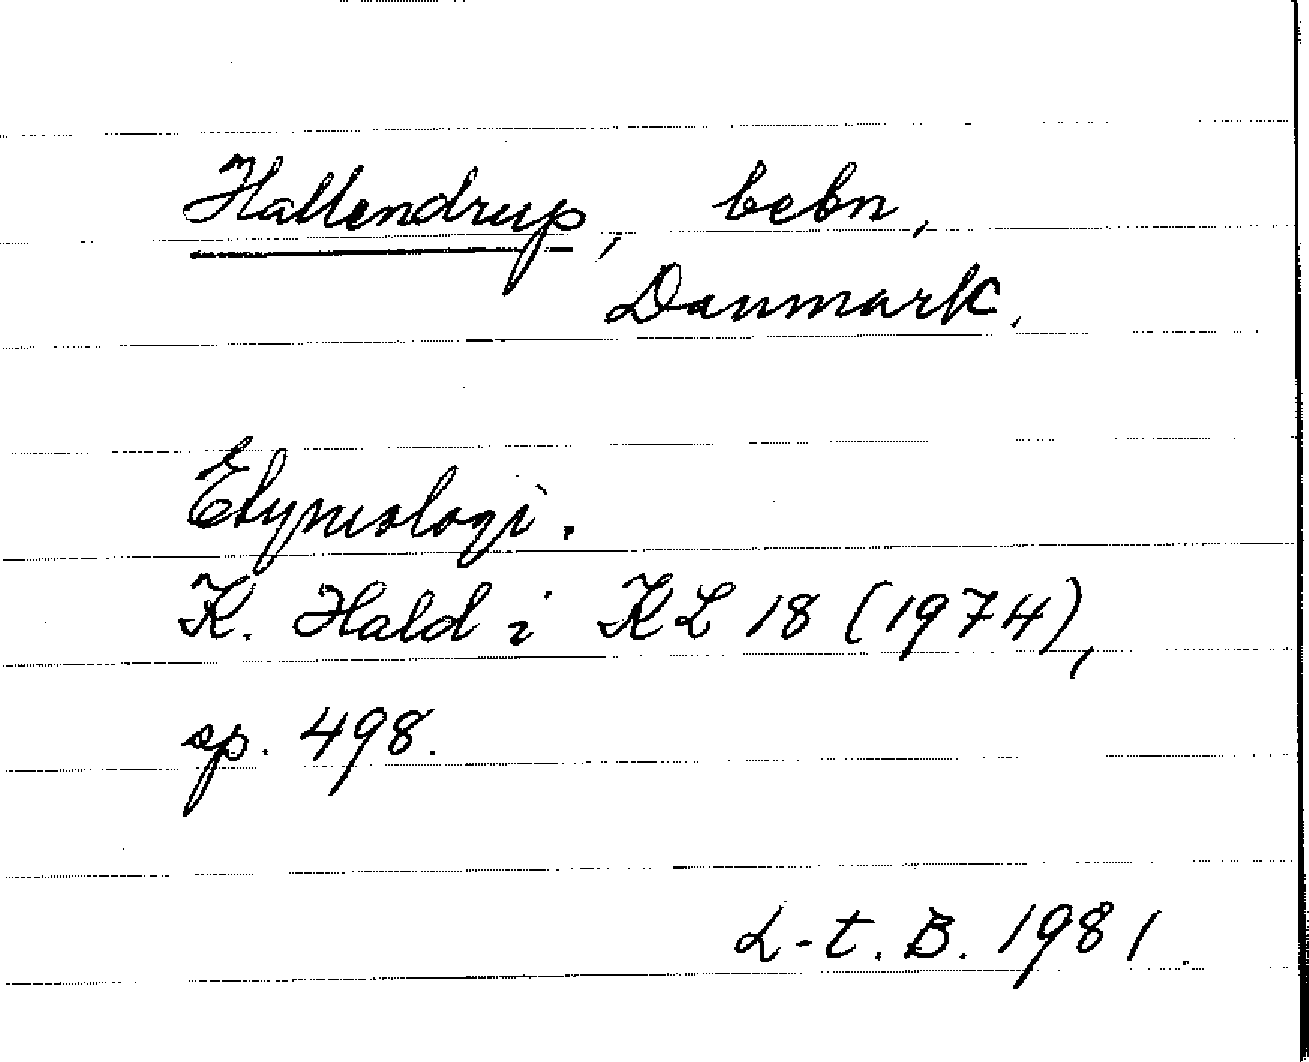 Hallendrup, bebn,
Danmark.
Etymologi.
K. Hald i KL 18 (1974),
sp. 498.
L-t. B. 1981.